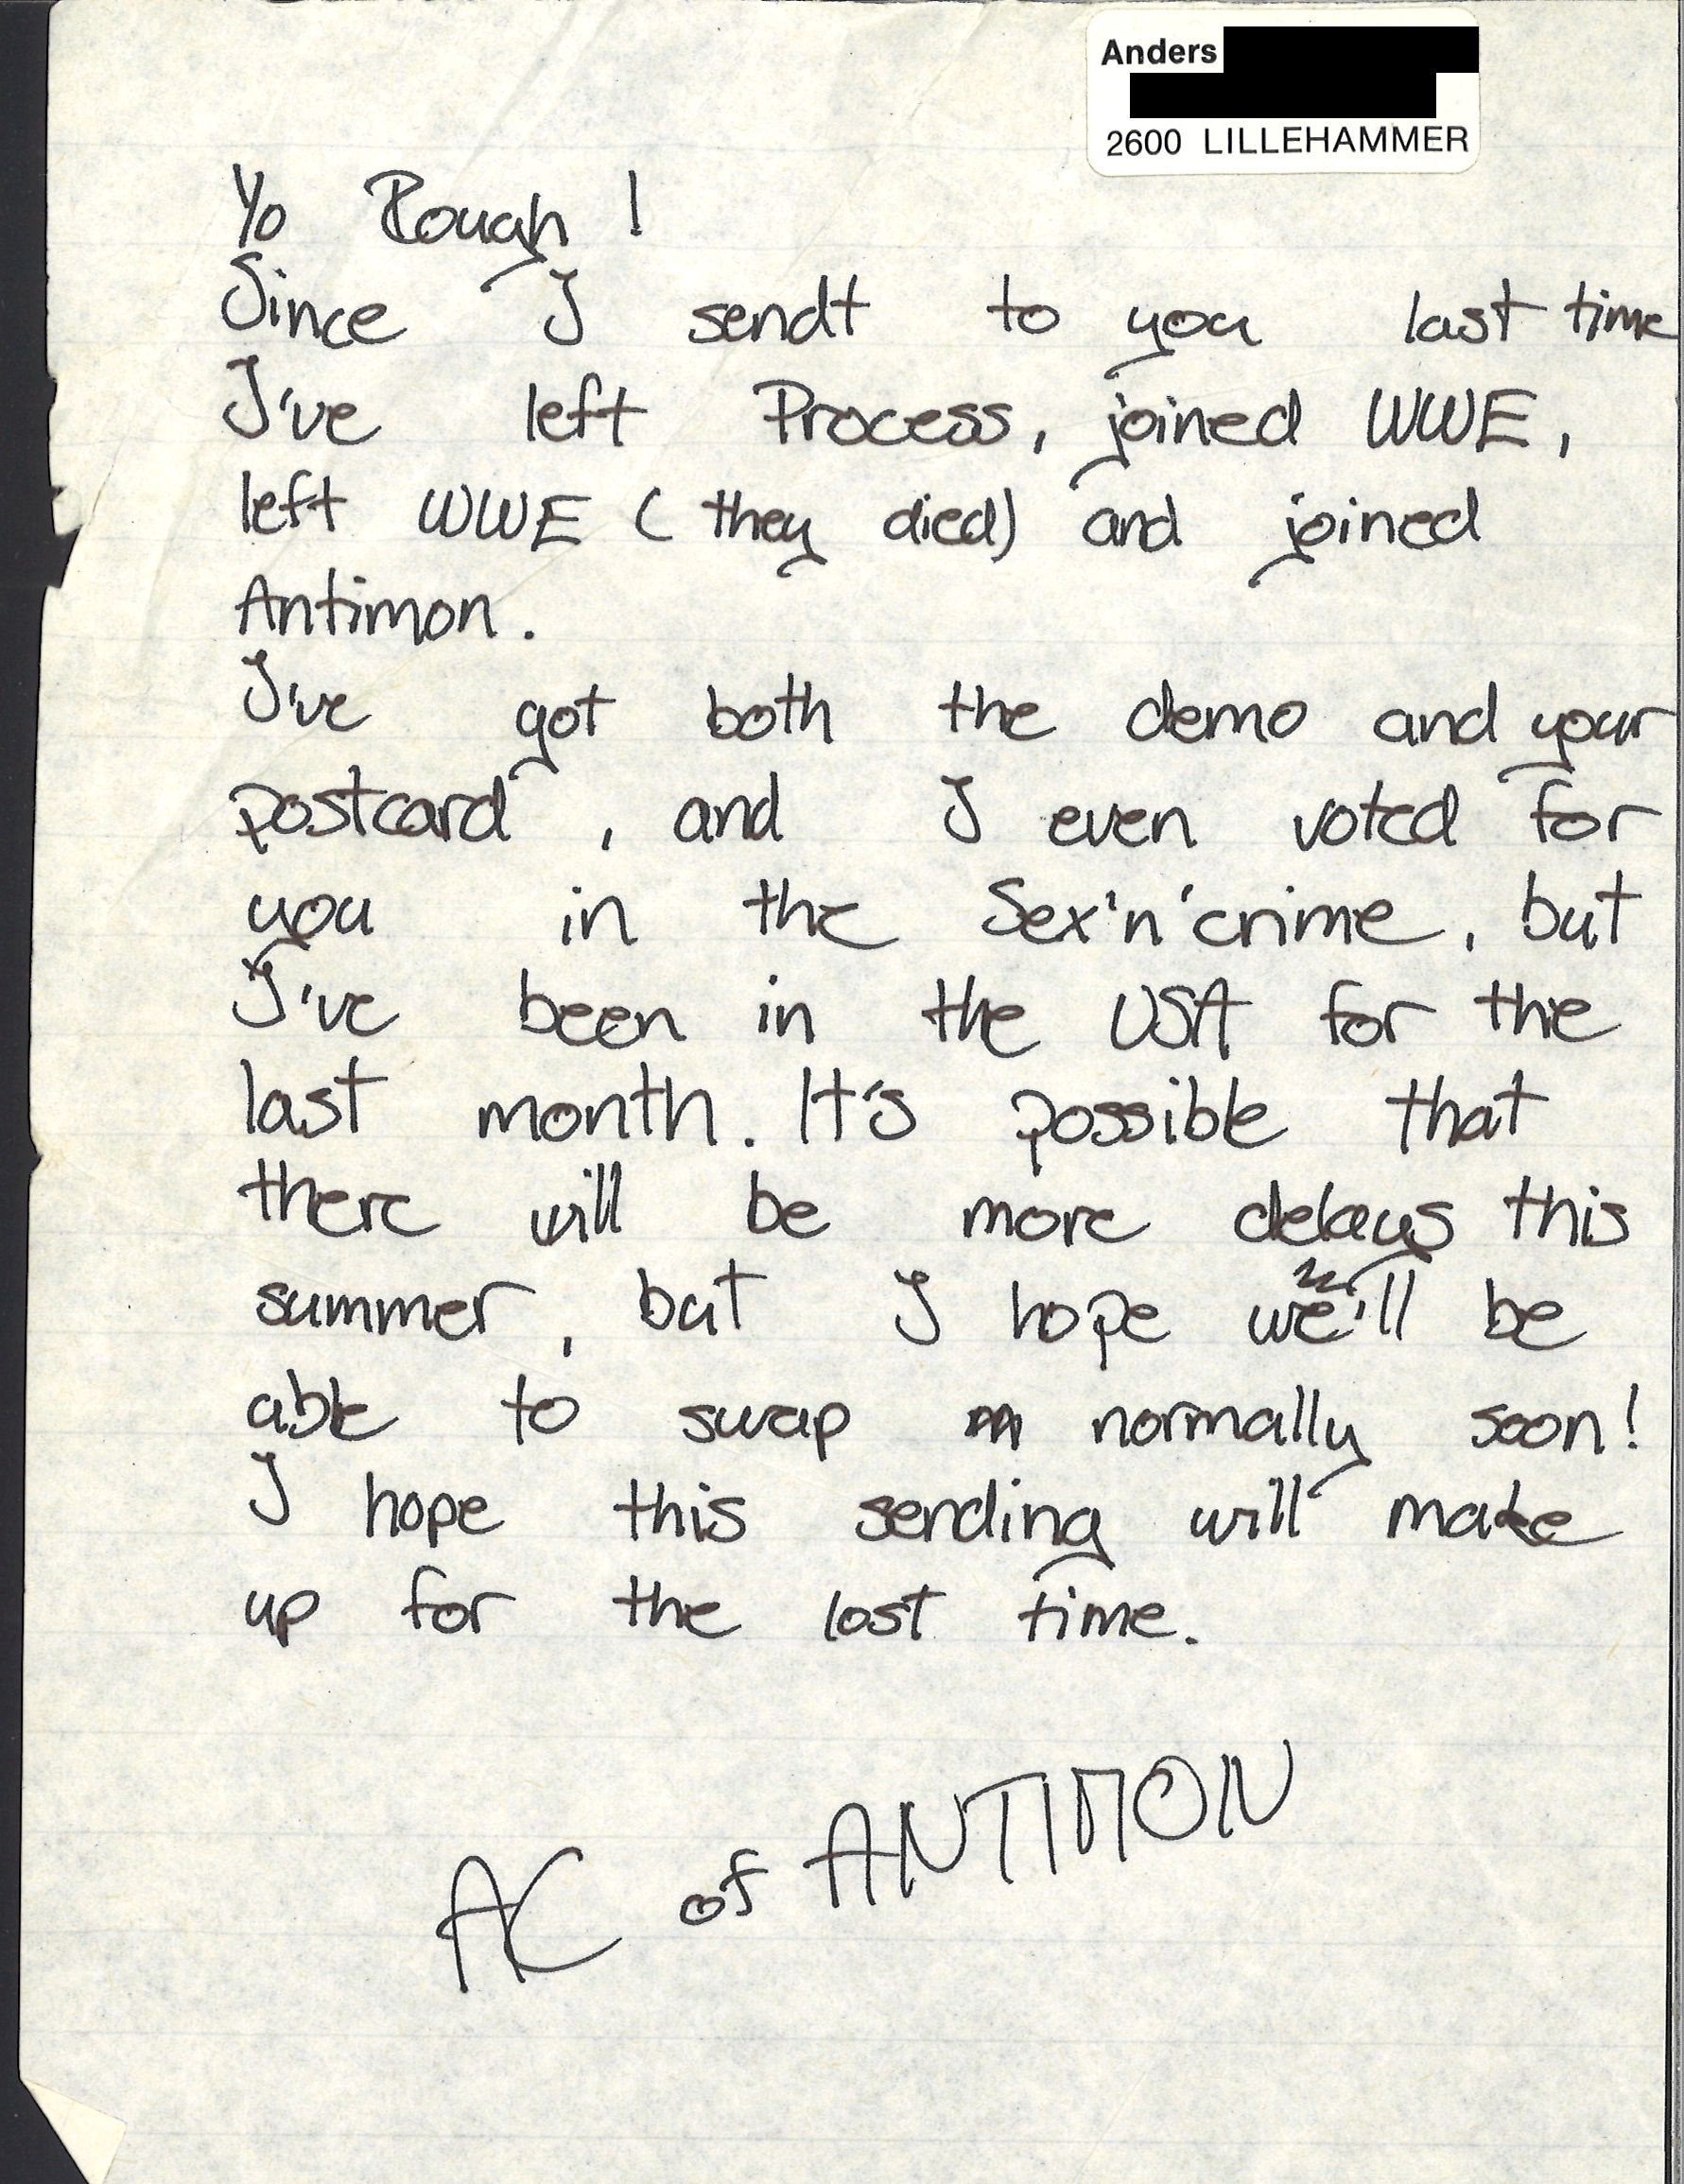 Anders
2600 LILLEHAMMER
Yo Rough !
Since I sendt to you last time
I've left Process, joined WWE,
left WWE ( they died) and joined
Antimon.
I've got both the demo and your
postcard , and I even voted for
you in the Sex'n'crime, but
I've been in the USA for the
last month. It's possible that
there will be more delays this
summer, but I hope we'll be
able to swap normally soon!
I hope this sending will make
up for the lost time.
AC of ANTIMON